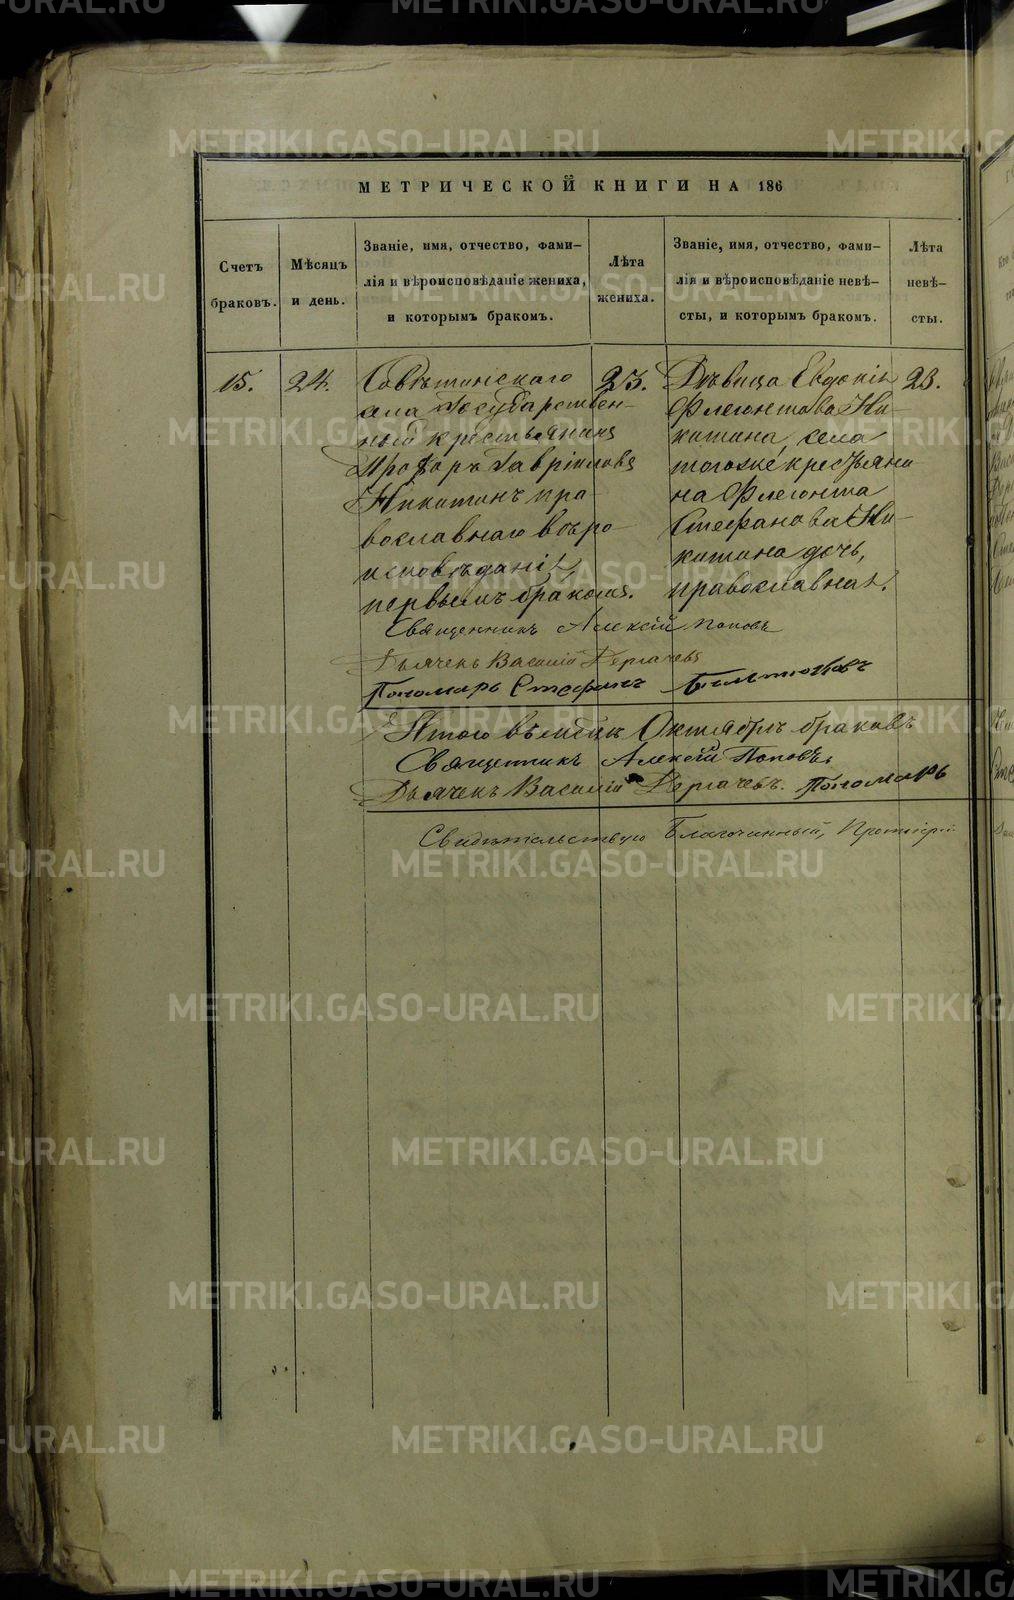 МЕТРИЧЕСКОЙ КНИГИ НА 186
Счетъ
браковъ.
Мѣсяцъ
и день.
Званіе, имя, отчество, фами-
лія и вѣроисповѣданіе жениха,
и которымъ бракомъ.
Лѣта
жениха.
Званіе, имя, отчество, фами-
лія и вѣроисповѣданіе невѣ-
сты, и которымъ бракомъ.
Лѣта
невѣ-
сты.
15.
24.
села Государствен-
ный крестьянинъ
Гавріиловъ
Никитинъ пра-
вославнаго вѣро-
исповѣданія,
первымъ бракомъ.
23.
Дѣвица Евдокія
Флегонтова Ни-
китина, села
тогоже крестьяни-
на Флегонта
Стефанова Ни-
китина дочь,
православная.
23.
Священникъ Алексій Поповъ
Дьячекъ Василій Дергачевъ
Пономарь Стефанъ
Итого въ Октябрѣ браковъ
Священникъ Алексій Поповъ.
Дьячекъ Василій Дергачевъ. Пономарь
Свидѣтельствую Благочинный, Протоіерей
METRIKI.GASO-URAL.RU